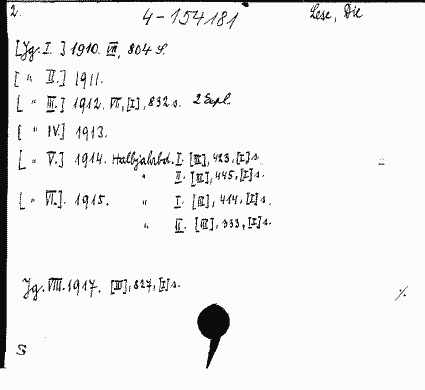 2.
4-154181
Lese, Die
[Jg. I.] 1910. VII, 804 S.
[ " II.] 1911.
[ " III.] 1912. VII, [I], 832 s. 2 Expl.
[ " IV.] 1913.
[ " V.] 1914. Halbjahrbd. I. [III], 423, [I] s.
" II. [III], 445, [I] s.
[ " VI.]. 1915. " I. [III], 414, [I] s.
" II. [III], 333, [I] s.
Jg. VIII. 1917. [III], 827, [I] s.
%.
S